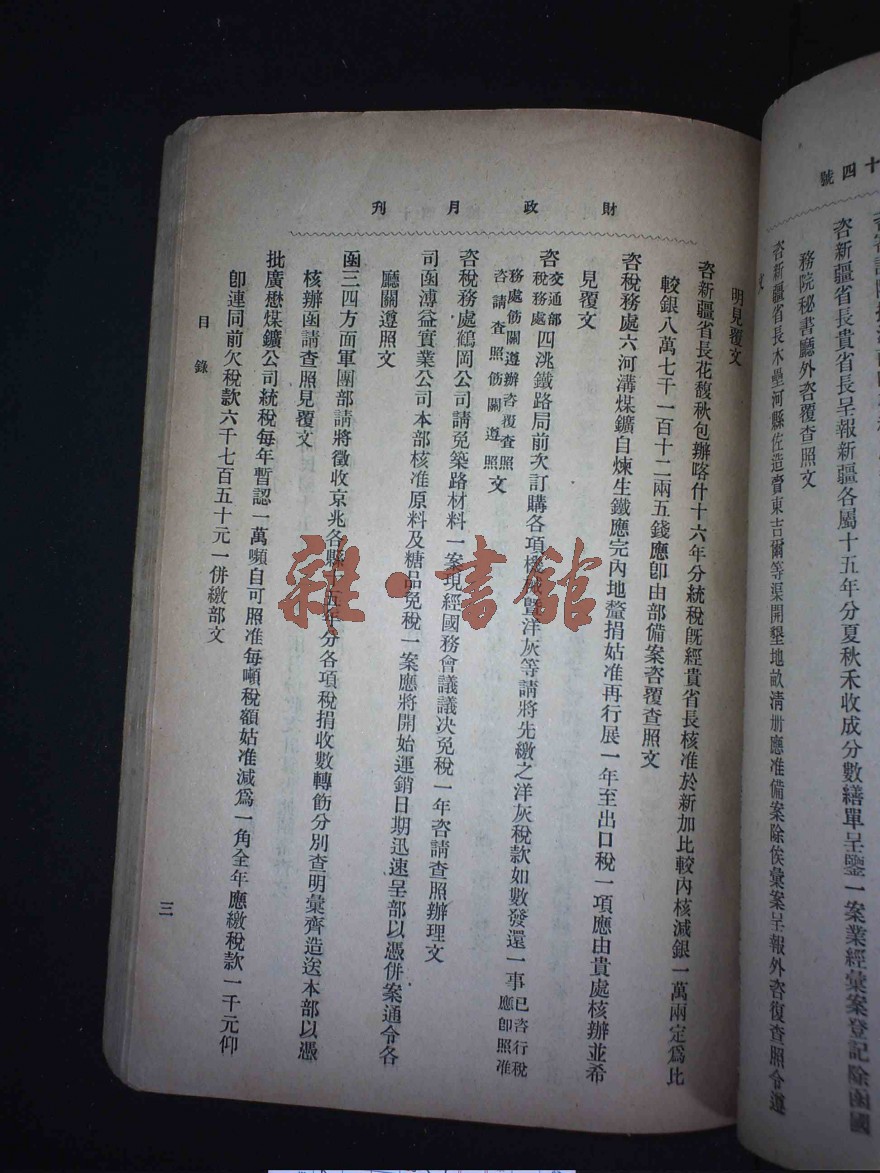 十四號
咨新疆省長貴省長呈報新疆各屬十五年分夏秋禾收成分數繕單呈鑒一案業經彙案登記除函國
務院秘書廳外咨覆查照文
咨新疆省長木壘河縣佐造賫東吉爾等渠開墾地畝清册應准備案除俟彙案呈報外咨復查照令遵
文
財政月刊
明見覆文
咨新疆省長花馥秋包辦喀什十六年分統稅旣經貴省長核准於新加比較內核減銀一萬兩定爲比
較銀八萬七千一百十二兩五錢應卽由部備案咨覆查照文
咨稅務處六河溝煤鑛自煉生鐵應完內地釐捐姑准再行展一年至出口稅一項應由貴處核辦並希
見覆文
咨交通部稅務處四洮鐵路局前次訂購各項機械暨洋灰等請將先繳之洋灰稅款如數發還一事已咨行稅應卽照准
務處飭關遵辦咨覆查照咨請查照飭關遵照文
咨稅務處鶴岡公司請免築路材料一案現經國務會議議決免稅一年咨請查照辦理文
司函溥益實業公司本部核准原料及糖品免稅一案應將開始運銷日期迅速呈部以憑併案通令各
廳關遵照文
函三四方面軍團部請將徵收京兆各縣十五年分各項稅捐收數轉飭分別查明彙齊造送本部以憑
核辦函請查照見覆文
批廣懋煤鑛公司統稅每年暫認一萬噸自可照准每噸稅額姑准減爲一角全年應繳稅款一千元仰
卽連同前欠稅款六千七百五十元一併繳部文
目錄
三
雜·書館